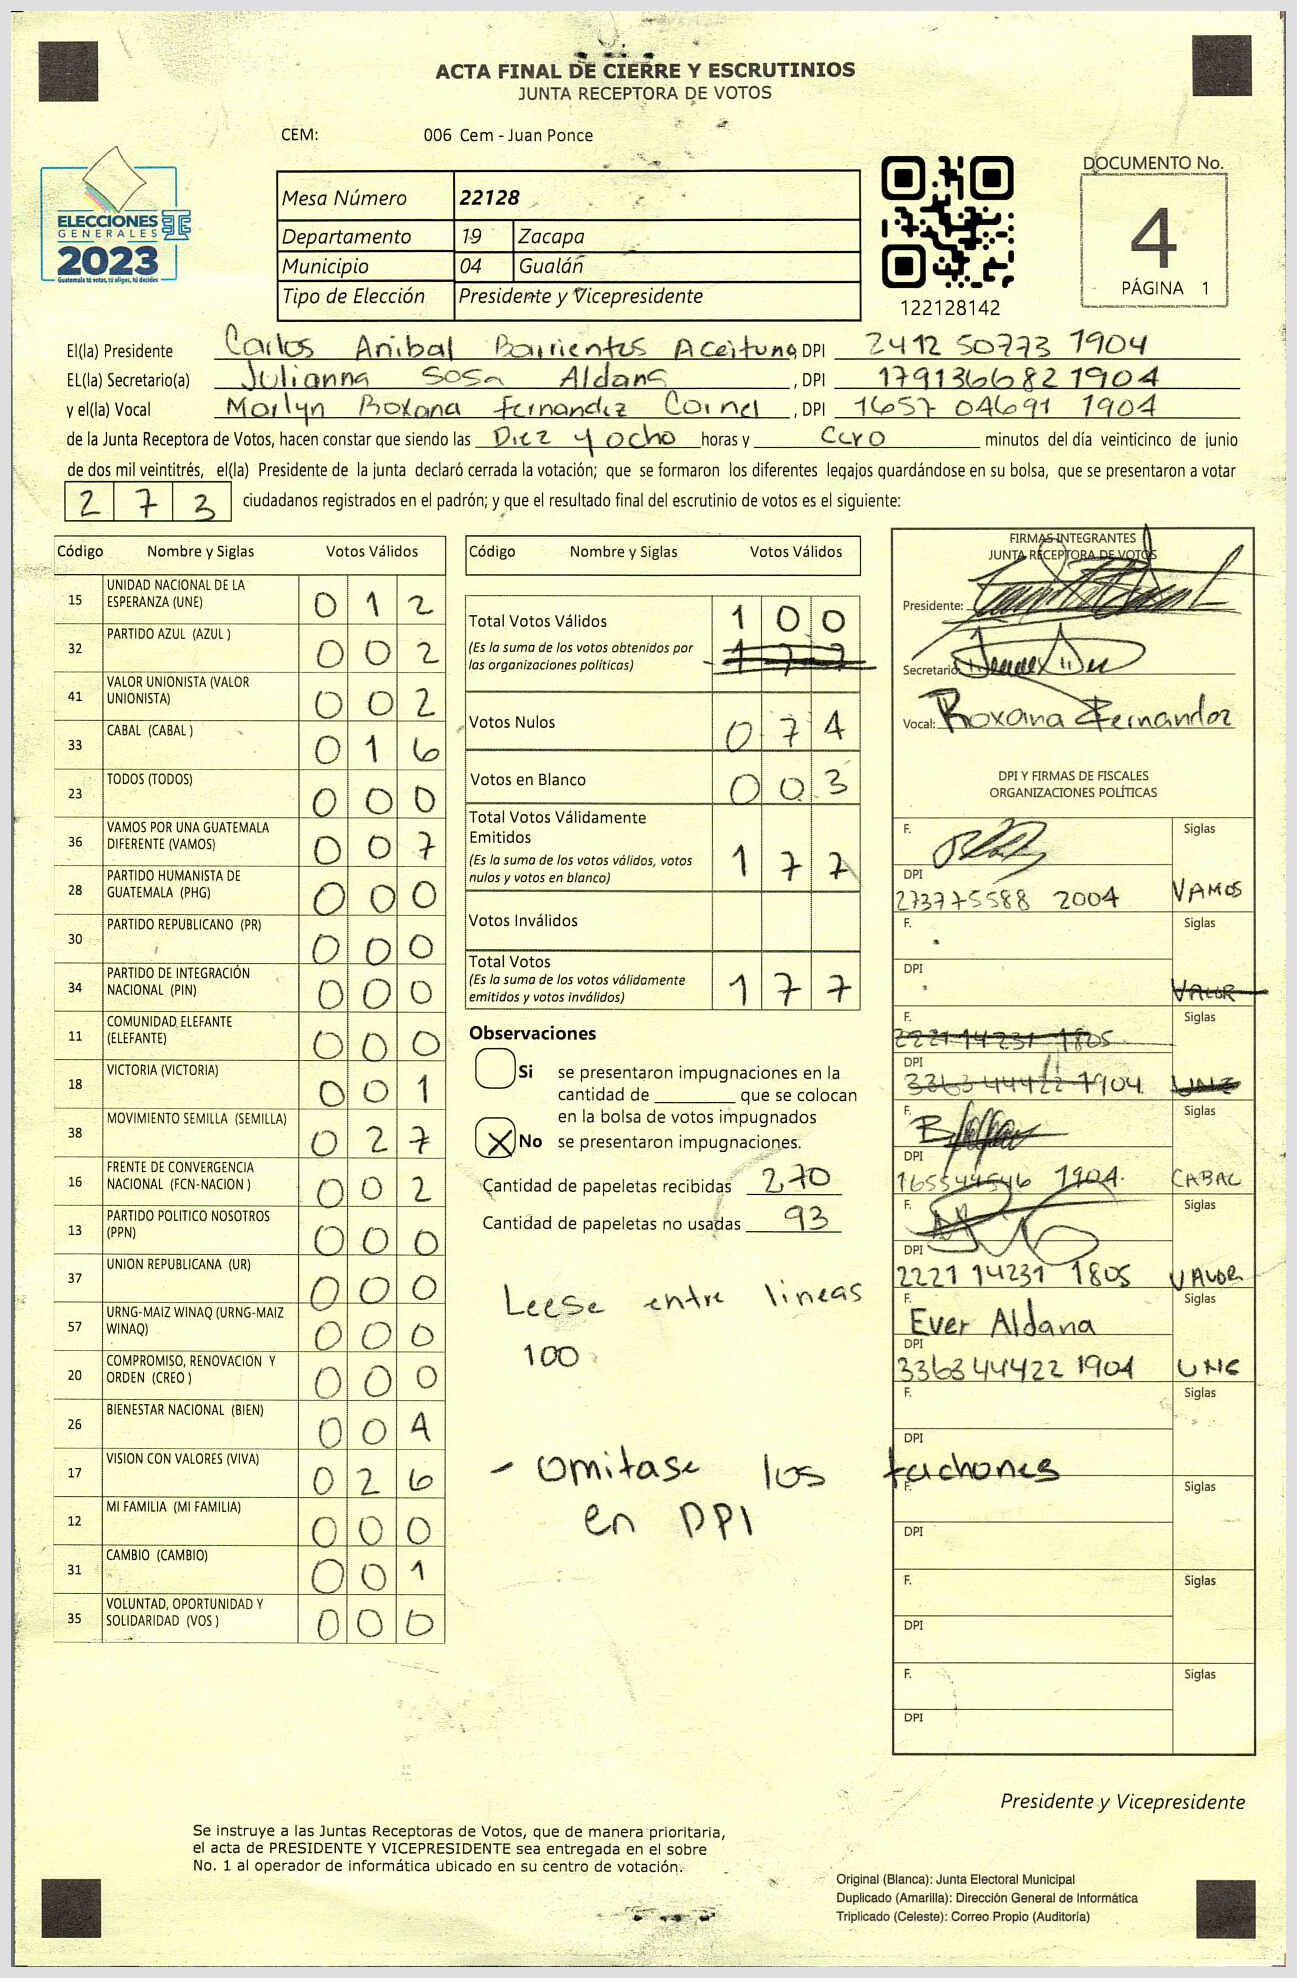 ACTA FINAL DE CIERRE Y ESCRUTINIOS
JUNTA RECEPTORA DE VOTOS
CEM: 006 Cem - Juan Ponce
ELECCIONES
GENERALES
2023
Guatemala tú votas, tú eliges, tú decides
Mesa Número 22128
Departamento 19 Zacapa
Municipio 04 Gualán
Tipo de Elección Presidente y Vicepresidente
122128142
DOCUMENTO No.
4
PÁGINA 1
El(la) Presidente Carlos Anibal Barrientos Aceituna DPI 2412 50773 1904
EL(la) Secretario(a) Julianna Sosa Aldana, DPI 179136682 1904
y el(la) Vocal Marlyn Roxana Fernandez Coinel, DPI 1657 04691 1904
de la Junta Receptora de Votos, hacen constar que siendo las Diez y ocho horas y Cero minutos del día veinticinco de junio
de dos mil veintitrés, el(la) Presidente de la junta declaró cerrada la votación; que se formaron los diferentes legajos quardándose en su bolsa, que se presentaron a votar
2 7 3 ciudadanos registrados en el padrón; y que el resultado final del escrutinio de votos es el siguiente:
Código Nombre y Siglas Votos Válidos
15 UNIDAD NACIONAL DE LA ESPERANZA (UNE) 0 1 2
32 PARTIDO AZUL (AZUL ) 0 0 2
41 VALOR UNIONISTA (VALOR UNIONISTA) 0 0 2
33 CABAL (CABAL ) 0 1 6
23 TODOS (TODOS) 0 0 0
36 VAMOS POR UNA GUATEMALA DIFERENTE (VAMOS) 0 0 7
28 PARTIDO HUMANISTA DE GUATEMALA (PHG) 0 0 0
30 PARTIDO REPUBLICANO (PR) 0 0 0
34 PARTIDO DE INTEGRACIÓN NACIONAL (PIN) 0 0 0
11 COMUNIDAD ELEFANTE (ELEFANTE) 0 0 0
18 VICTORIA (VICTORIA) 0 0 1
38 MOVIMIENTO SEMILLA (SEMILLA) 0 2 7
16 FRENTE DE CONVERGENCIA NACIONAL (FCN-NACION ) 0 0 2
13 PARTIDO POLITICO NOSOTROS (PPN) 0 0 0
37 UNION REPUBLICANA (UR) 0 0 0
57 URNG-MAIZ WINAQ (URNG-MAIZ WINAQ) 0 0 0
20 COMPROMISO, RENOVACION Y ORDEN (CREO ) 0 0 0
26 BIENESTAR NACIONAL (BIEN) 0 0 4
17 VISION CON VALORES (VIVA) 0 2 6
12 MI FAMILIA (MI FAMILIA) 0 0 0
31 CAMBIO (CAMBIO) 0 0 1
35 VOLUNTAD, OPORTUNIDAD Y SOLIDARIDAD (VOS ) 0 0 0
Código Nombre y Siglas Votos Válidos
Total Votos Válidos 1 0 0
(Es la suma de los votos obtenidos por las organizaciones políticas) 1 7 7
Votos Nulos 0 7 4
Votos en Blanco 0 0 3
Total Votos Válidamente Emitidos
(Es la suma de los votos válidos, votos nulos y votos en blanco) 1 7 7
Votos Inválidos
Total Votos
(Es la suma de los votos válidamente emitidos y votos inválidos) 1 7 7
Observaciones
Si se presentaron impugnaciones en la
cantidad de ________ que se colocan
en la bolsa de votos impugnados
X No se presentaron impugnaciones.
Cantidad de papeletas recibidas 270
Cantidad de papeletas no usadas 93
Leese entre lineas
100
- omitase los tachones
en DPI
FIRMAS INTEGRANTES
JUNTA RECEPTORA DE VOTOS
Presidente:
Secretario:
Vocal: Roxana Fernandez
DPI Y FIRMAS DE FISCALES
ORGANIZACIONES POLÍTICAS
F. Siglas
DPI
273775588 2004 VAMOS
F. Siglas
DPI
VALOR
F. Siglas
2221 14231 1805
DPI
3363 44422 1904 UNE
F. Siglas
DPI
165544546 1904. CABAL
F. Siglas
DPI
2221 14231 1805 VALOR
F. Siglas
Ever Aldana
DPI
3363 44422 1904 UNE
F. Siglas
DPI
F. Siglas
DPI
F. Siglas
DPI
F. Siglas
DPI
Presidente y Vicepresidente
Se instruye a las Juntas Receptoras de Votos, que de manera prioritaria,
el acta de PRESIDENTE Y VICEPRESIDENTE sea entregada en el sobre
No. 1 al operador de informática ubicado en su centro de votación.
Original (Blanca): Junta Electoral Municipal
Duplicado (Amarilla): Dirección General de Informática
Triplicado (Celeste): Correo Propio (Auditoría)